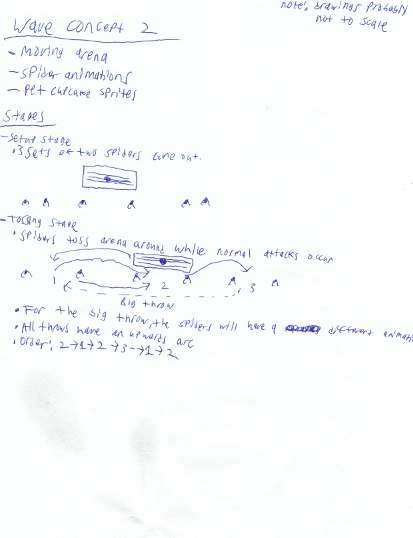 Wave Concept 2
note: drawings probably
not to scale
- Moving arena
- Spider animations
- Pet cutscene sprites
Stages
- Setup stage
• 3 sets of two spiders come out.
- Tossing stage
• Spiders toss arena around while normal attacks occur
1 2 3
Big throw
• For the big throw, the spiders will have a different animati
• All throws have an upwards arc
• Order: 2→1→2→3→1→2